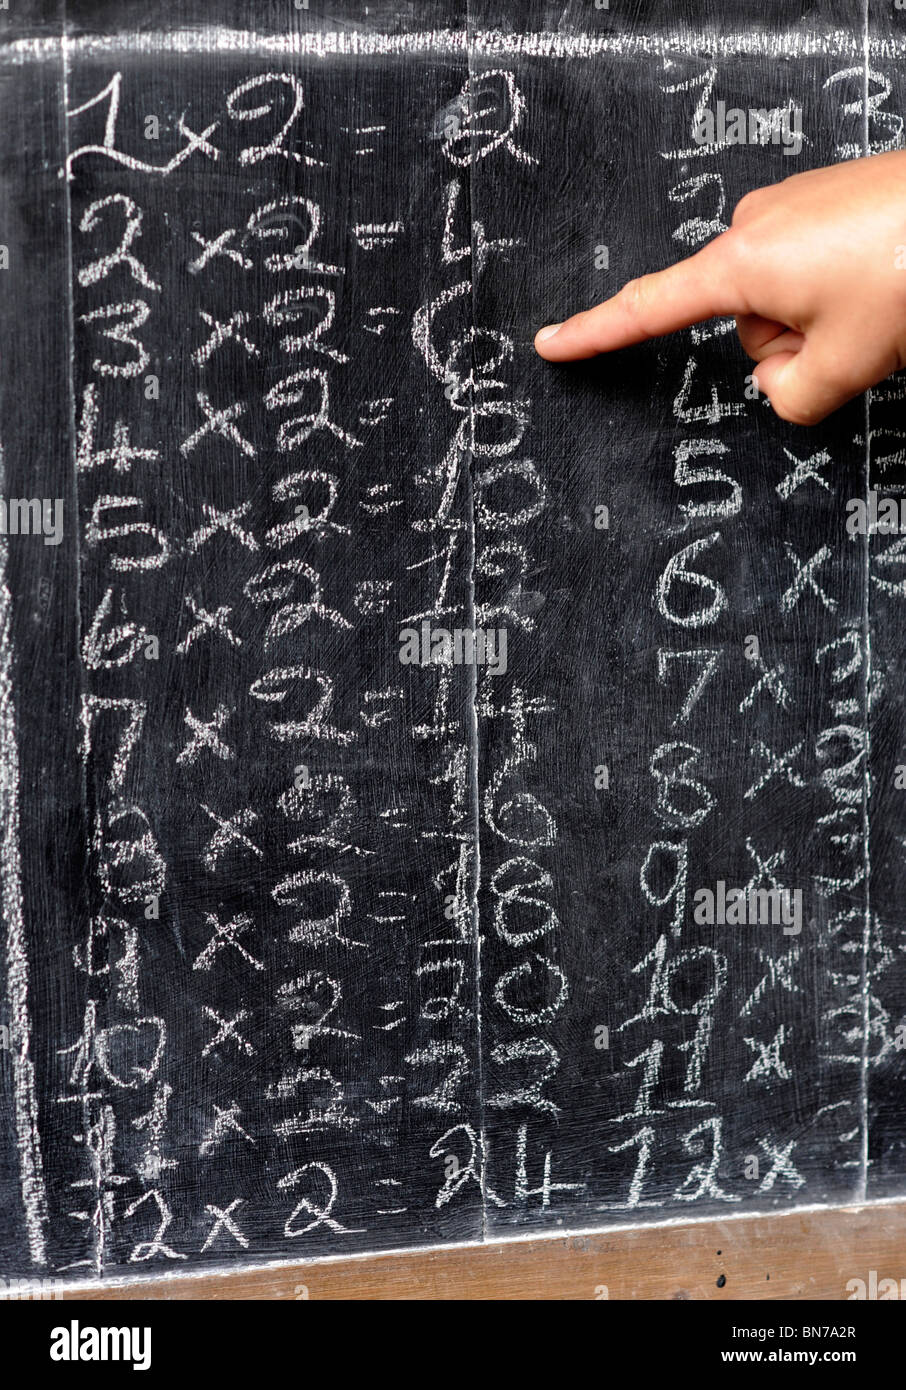 1 x 2 = 2 1 x 3
2 x 2 = 4 2
3 x 2 = 6
4 x 2 = 8 4
5 x 2 = 10 5 x
6 x 2 = 12 6 x
7 x 2 = 14 7 x 3
8 x 2 = 16 8 x
9 x 2 = 18 9 x 3
10 x 2 = 20 10 x 3
11 x 2 = 22 11 x 3
12 x 2 = 24 12 x
alamy
Image ID: BN7A2R
www.alamy.com